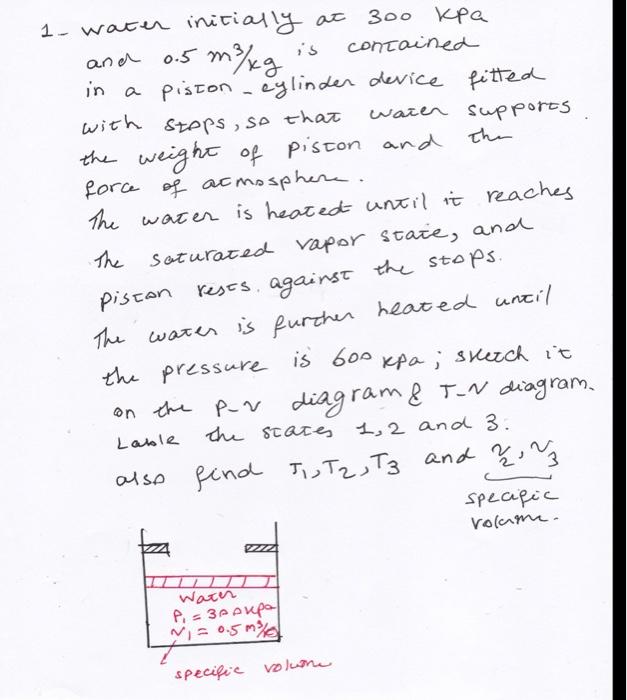 1- water initially at 300 kpa
and 0.5 m³/kg is contained
in a piston - cylinder device fitted
with stops, so that water supports
the weight of piston and the
force of atmosphere.
The water is heated until it reaches
the saturated vapor state, and
piston rests against the stops.
The water is further heated until
the pressure is 600 kpa; sketch it
on the P-v diagram & T-v diagram.
Lable the states 1, 2 and 3.
also find T₁, T₂, T₃ and v₂, v₃
specific
volume.
Water
P₁ = 300 kpa
v₁ = 0.5 m³/kg
specific volume